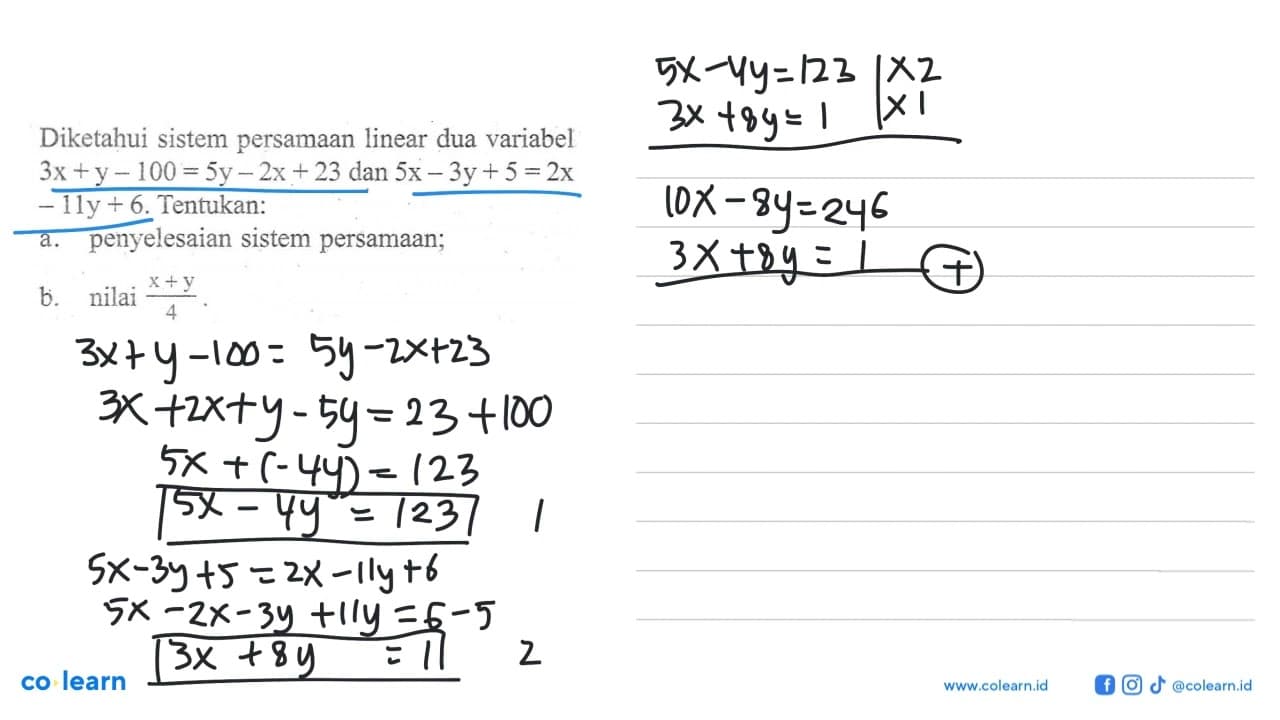 Diketahui sistem persamaan linear dua variabel
3x + y – 100 = 5y – 2x + 23 dan 5x – 3y + 5 = 2x
– 11y + 6. Tentukan:
a. penyelesaian sistem persamaan;
b. nilai x + y / 4 .
3x + y - 100 = 5y - 2x + 23
3x + 2x + y - 5y = 23 + 100
5x + (-4y) = 123
5x - 4y = 123 1
5x - 3y + 5 = 2x - 11y + 6
5x - 2x - 3y + 11y = 6 - 5
3x + 8y = 1 2
5x - 4y = 123 | x 2
3x + 8y = 1 | x 1
10x - 8y = 246
3x + 8y = 1 +
co learn
www.colearn.id
@colearn.id